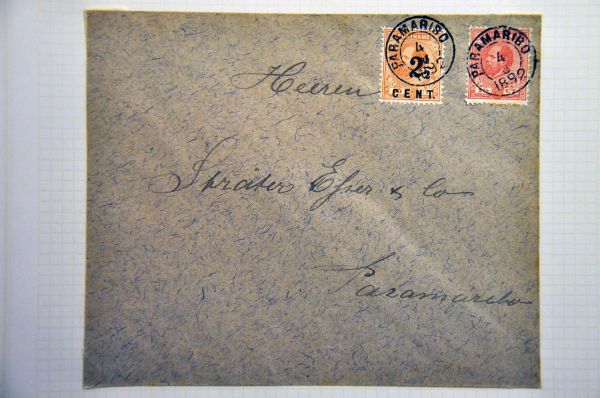 PARAMARIBO
4
1892
2½
CENT.
PARAMARIBO
4
1892
Heeren
Schröter Esser & Co
Paramaribo